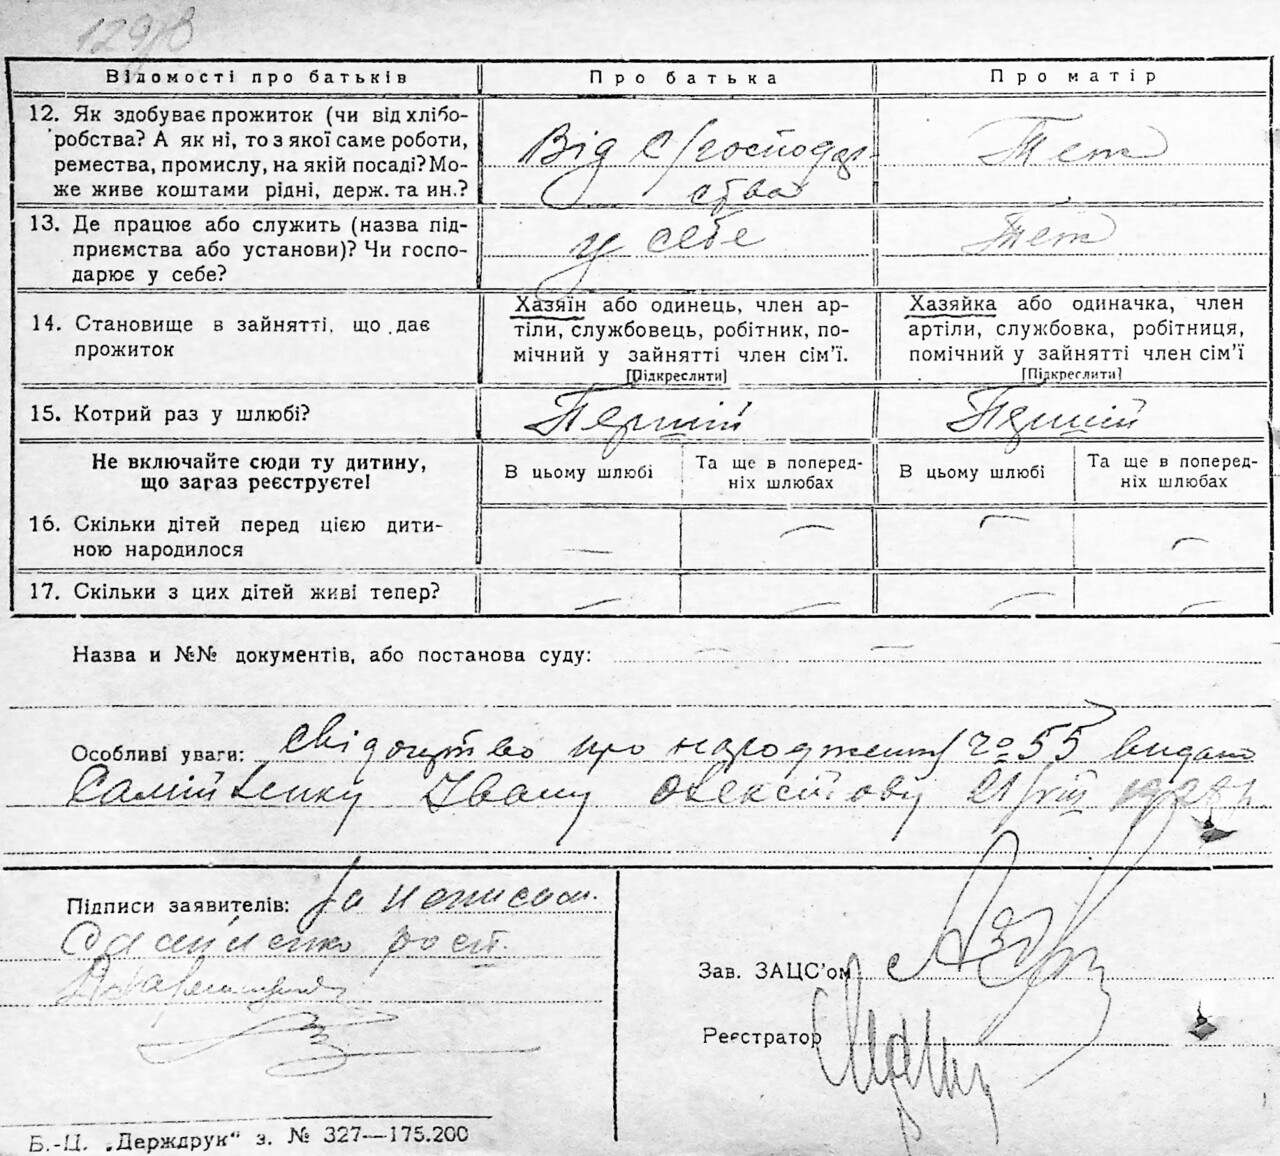 129/8
Відомості про батьків Про батька Про матір
12. Як здобуває прожиток (чи від хлібо-
робства? А як ні, то з якої саме роботи,
ремества, промислу, на якій посаді? Мо-
же живе коштами рідні, держ. та ин.?
Від с/господар-
ства
Теж
13. Де працює або служить (назва під-
приємства або установи)? Чи госпо-
дарює у себе?
у себе
Теж
14. Становище в зайнятті, що дає
прожиток
Хазяїн або одинець, член ар-
тіли, службовець, робітник, по-
мічний у зайнятті член сім'ї.
[Підкреслити]
Хазяйка або одиначка, член
артіли, службовка, робітниця,
помічний у зайнятті член сім'ї
[Підкреслити]
15. Котрий раз у шлюбі?
Перший
Перший
Не включайте сюди ту дитину,
що зараз реєструєте!
В цьому шлюбі
Та ще в поперед-
ніх шлюбах
В цьому шлюбі
Та ще в поперед-
ніх шлюбах
16. Скільки дітей перед цією дити-
ною народилося
— — — —
17. Скільки з цих дітей живі тепер?
— — — —
Назва и №№ документів, або постанова суду: — —
Особливі уваги: свідоцтво про народження № 55 видано
Самійленку Івану Олексійову 21/VIII 1928 р.
Підписи заявителів:
Зав. ЗАЦС'ом
Реєстратор
Б.-Ц. „Держдрук" з. № 327—175.200